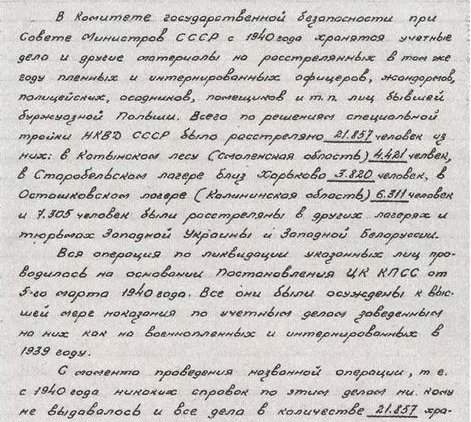 В Комитете государственной безопасности при
Совете Министров СССР с 1940 года хранятся учетные
дела и другие материалы на расстрелянных в том же
году пленных и интернированных офицеров, жандармов,
полицейских, осадников, помещиков и т.п. лиц бывшей
буржуазной Польши. Всего по решениям специальной
тройки НКВД СССР было расстреляно 21.857 человек из
них: в Катынском лесу (Смоленская область) 4.421 человек,
в Старобельском лагере близ Харькова 3.820 человек, в
Осташковском лагере (Калининская область) 6.311 человек
и 7.305 человек были расстреляны в других лагерях и
тюрьмах Западной Украины и Западной Белоруссии.
Вся операция по ликвидации указанных лиц про-
водилась на основании Постановления ЦК КПСС от
5-го марта 1940 года. Все они были осуждены к выс-
шей мере наказания по учетным делам заведенным
на них как на военнопленных и интернированных в
1939 году.
С момента проведения названной операции, т.е.
с 1940 года никаких справок по этим делам ни кому
не выдавалось и все дела в количестве 21.857 хра-